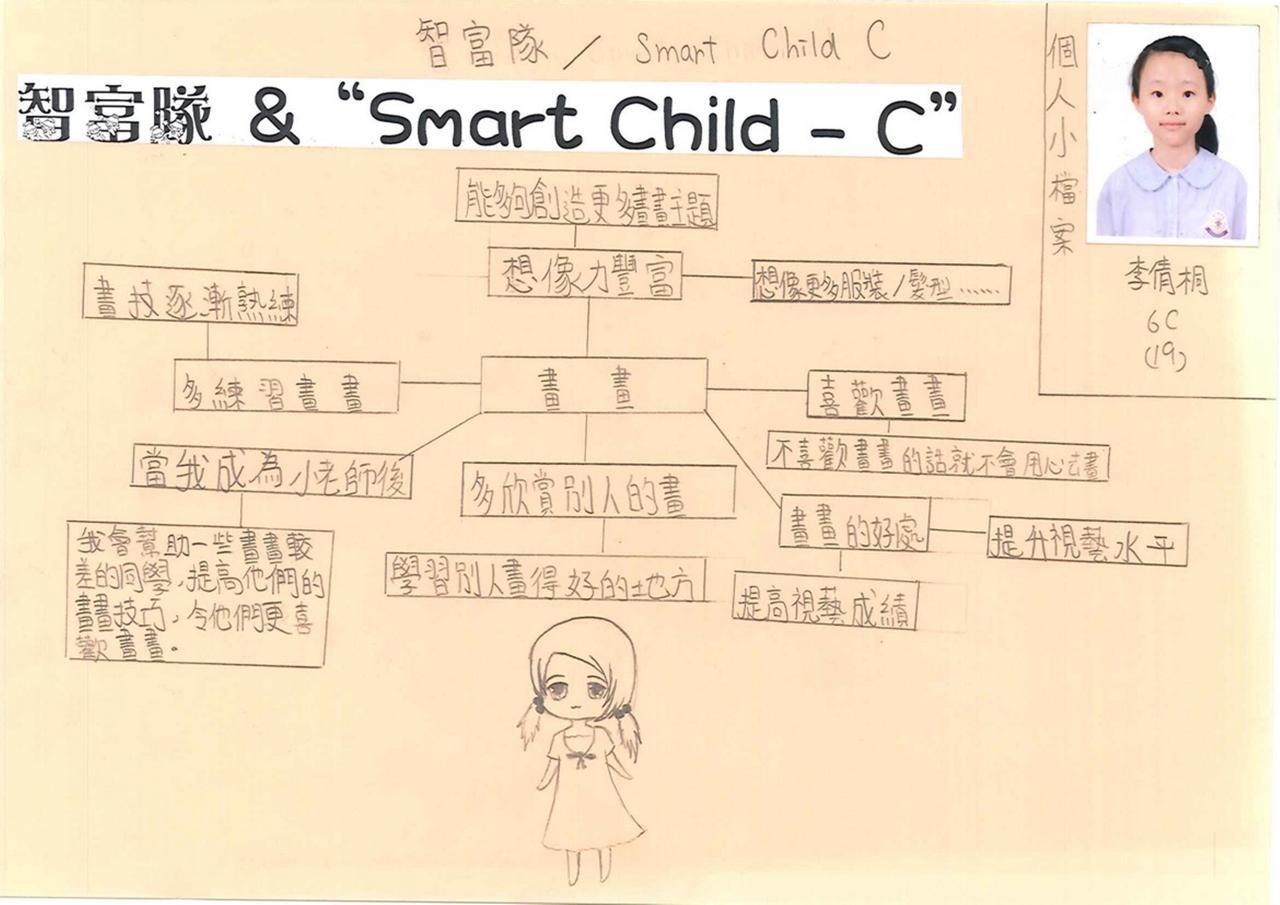 智富隊 / Smart Child C
智富隊 & “Smart Child – C”
個人小檔案
李倩桐
6C
(19)
能夠創造更多畫畫主題
想像力豐富
想像更多服裝/髮型……
畫技逐漸熟練
多練習畫畫
畫畫
喜歡畫畫
不喜歡畫畫的話就不會用心去畫
當我成為小老師後
多欣賞別人的畫
畫畫的好處
提升視藝水平
我會幫助一些畫畫較
差的同學，提高他們的
畫畫技巧，令他們更喜
歡畫畫。
學習別人畫得好的地方
提高視藝成績